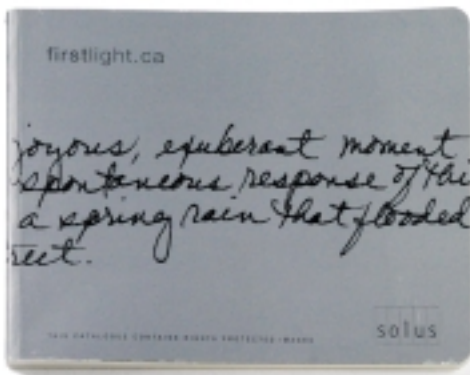 firstlight.ca
joyous, exuberant moment
spontaneous response of thi
a spring rain that flooded
reet.
THIS CATALOGUE CONTAINS RIGHTS PROTECTED IMAGES
solus